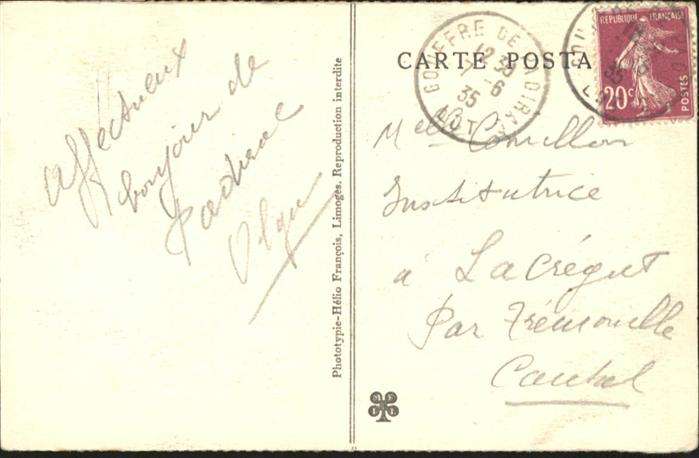 affectueux
bonjour de
Padirac
Olga
Phototypie-Hélio François, Limoges, Reproduction interdite
CARTE POSTA
GOUFFRE DE PADIRAC
12 35
1 -6
35
LOT
REPUBLIQUE FRANÇAISE
20c
POSTES
Melle Cornillon
Institutrice
à La Crégut
Par Trémouille
Cantal